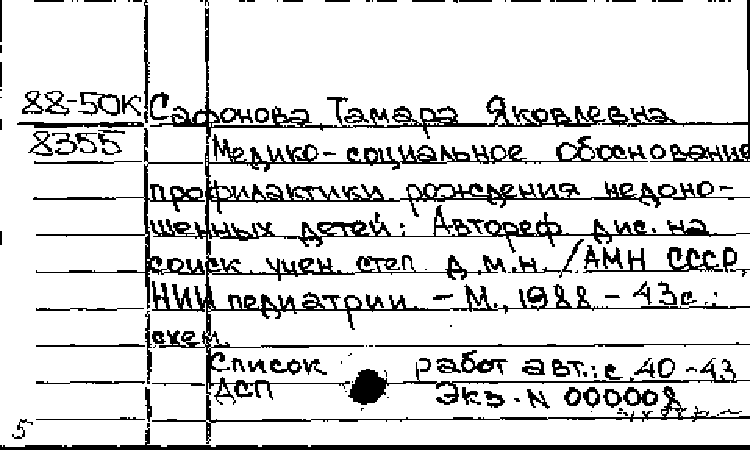 88-50К Сафонова Тамара Яковлевна
8355 Медико-социальное обоснование
профилактики рождения недоно-
шенных детей: Автореф. дис. на
соиск. учен. степ. д.м.н. /АМН СССР,
НИИ педиатрии. - М., 1988 - 43с.:
схем.
Список работ авт.: с. 40-43
ДСП Экз. N 000008
5